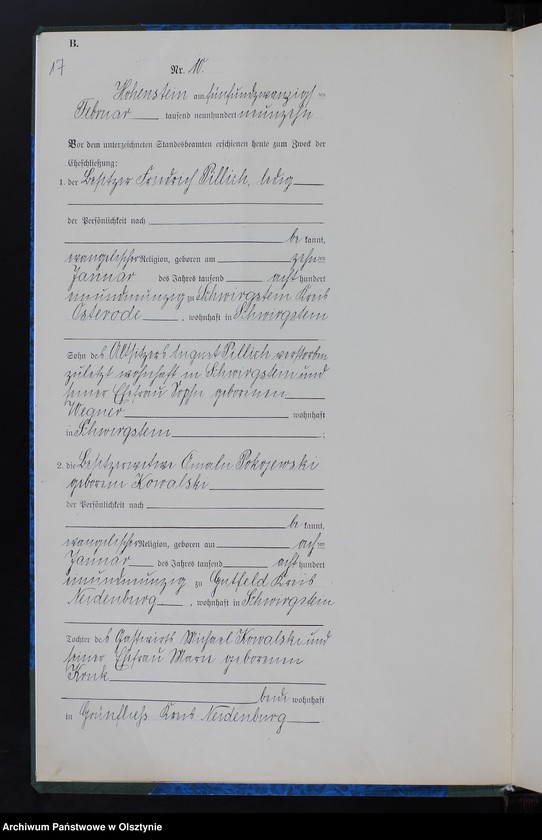 B.
17
Nr. 10.
Hohenstein am fünfundzwanzigsten
Februar tausend neunhundert neunzehn
Vor dem unterzeichneten Standesbeamten erschienen heute zum Zweck der
Eheschließung:
1. der Besitzer Friedrich Pillich, ledig
der Persönlichkeit nach
be kannt,
evangelischer Religion, geboren am zehn ten
Januar des Jahres tausend acht hundert
neunundneunzig zu Schwirgstein Kreis
Osterode, wohnhaft in Schwirgstein
Sohn des Altsitzers August Pillich verstorben
zuletzt wohnhaft in Schwirgstein und
seiner Ehefrau Sophie geborenen
Wegner wohnhaft
in Schwirgstein;
2. die Besitzerwitwe Amalie Pokojewski
geborene Kowalski
der Persönlichkeit nach
be kannt,
evangelischer Religion, geboren am ach ten
Januar des Jahres tausend acht hundert
neunundneunzig zu Gutfeld Kreis
Neidenburg, wohnhaft in Schwirgstein
Tochter des Gastwirts Michael Kowalski und
seiner Ehefrau Marie geborenen
beide wohnhaft
in Grünfließ Kreis Neidenburg.
Archiwum Państwowe w Olsztynie